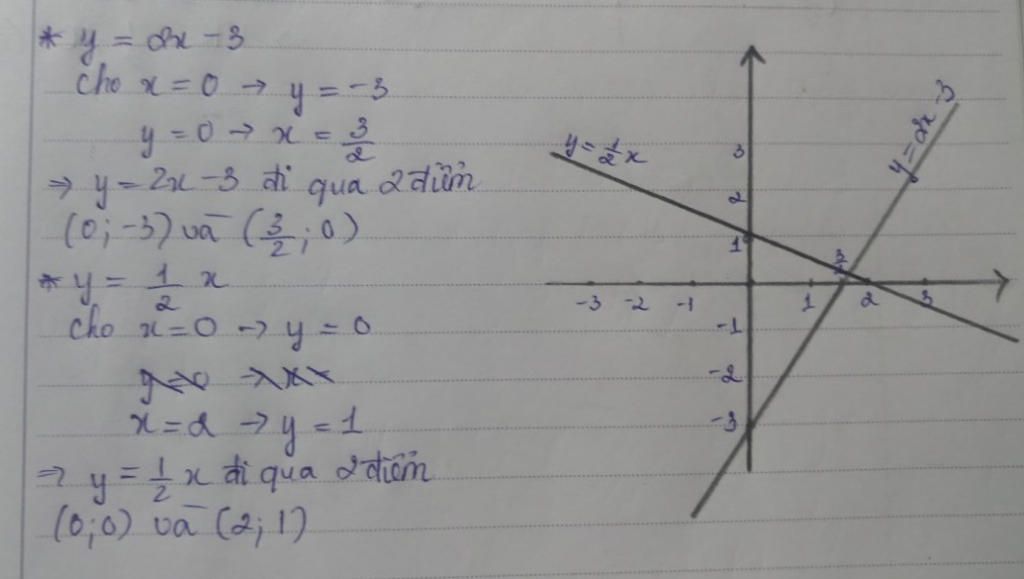 * y = 2x - 3
Cho x = 0 → y = -3
y = 0 → x = 3/2
⇒ y = 2x - 3 đi qua 2 điểm
(0; -3) và (3/2; 0)
* y = 1/2 x
Cho x = 0 → y = 0
y = 0 → x
x = 2 → y = 1
⇒ y = 1/2 x đi qua 2 điểm
(0; 0) và (2; 1)
y = 1/2 x
y = 2x - 3
3
2
1
3/2
-3 -2 -1 1 2 3
-1
-2
-3